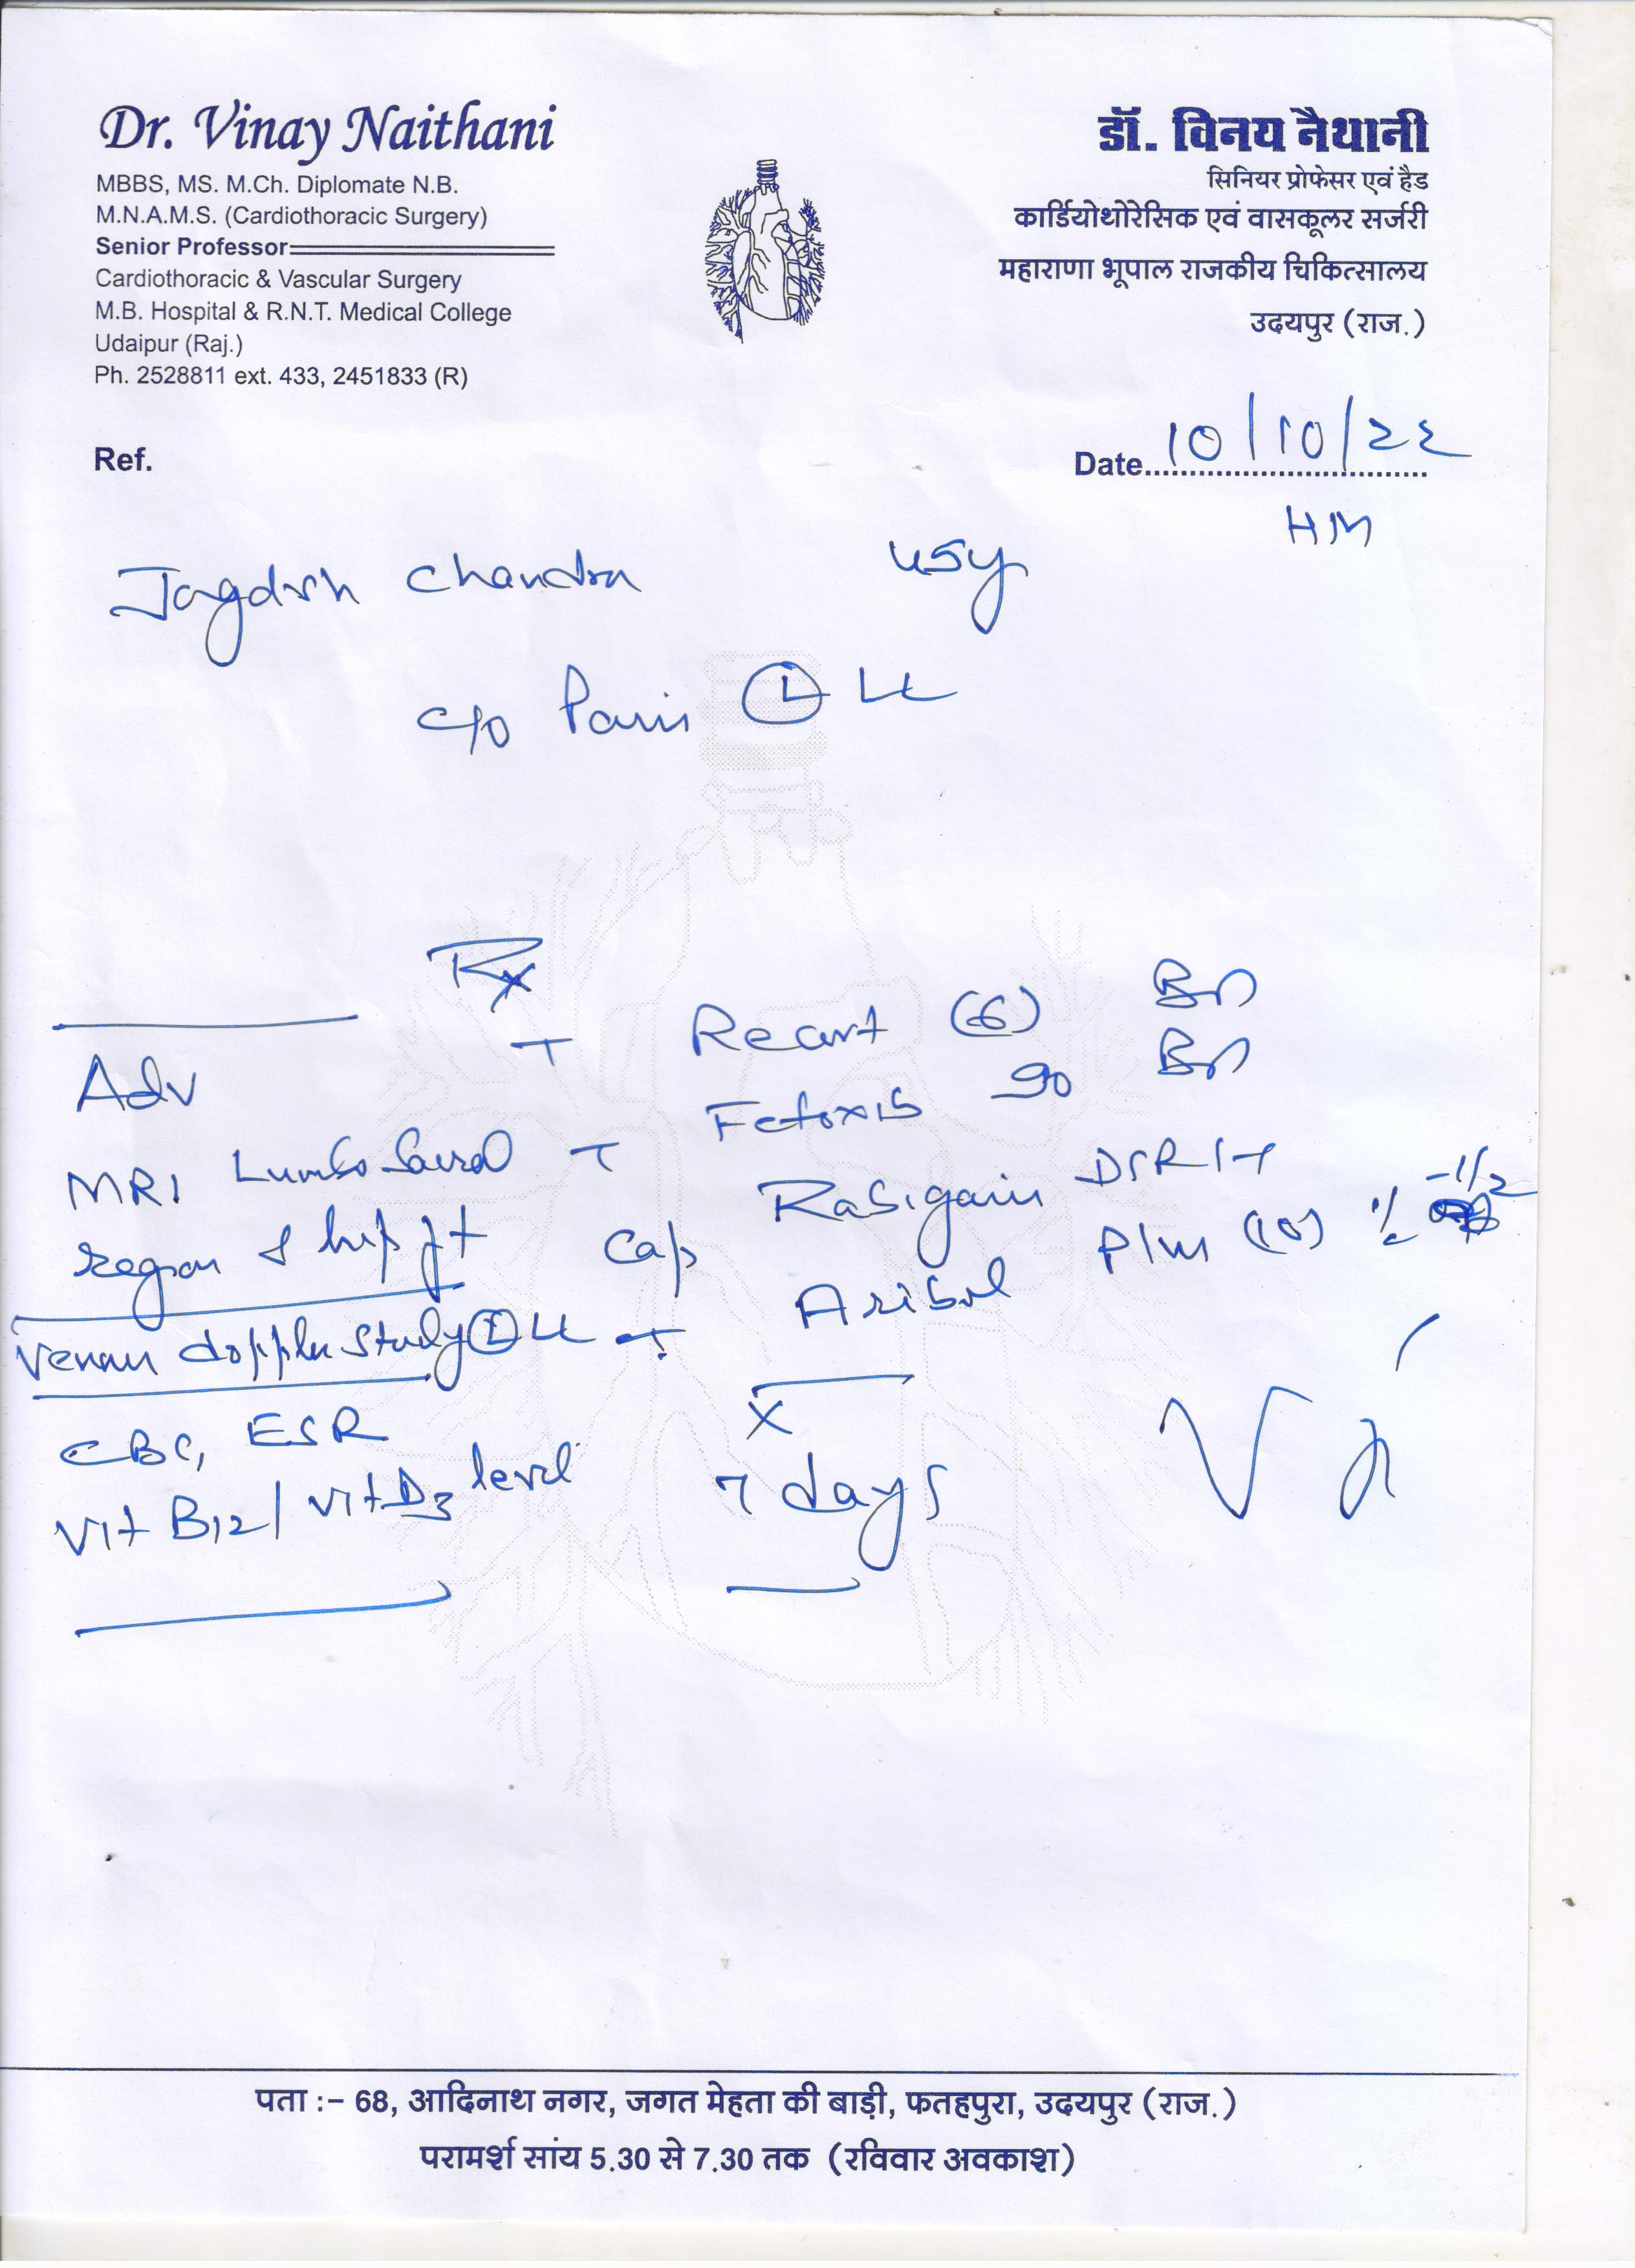 Dr. Vinay Naithani
MBBS, MS. M.Ch. Diplomate N.B.
M.N.A.M.S. (Cardiothoracic Surgery)
Senior Professor
Cardiothoracic & Vascular Surgery
M.B. Hospital & R.N.T. Medical College
Udaipur (Raj.)
Ph. 2528811 ext. 433, 2451833 (R)
डॉ. विनय नैथानी
सिनियर प्रोफेसर एवं हैड
कार्डियोथोरेसिक एवं वासकूलर सर्जरी
महाराणा भूपाल राजकीय चिकित्सालय
उदयपुर (राज.)
Ref.
Date 10/10/22
Jagdish Chandra 45y
c/o Pain (L) LL
Rx
T (6)
T 90
Cap Rabigain DSR
T Plus (10) -1/2
X
7 days
Adv
MRI Lumbo Sacral
region & hip jt
Venous doppler study (L) LL
CBC, ESR
Vit B12/ Vit D3 level
पता :– 68, आदिनाथ नगर, जगत मेहता की बाड़ी, फतहपुरा, उदयपुर (राज.)
परामर्श सांय 5.30 से 7.30 तक (रविवार अवकाश)